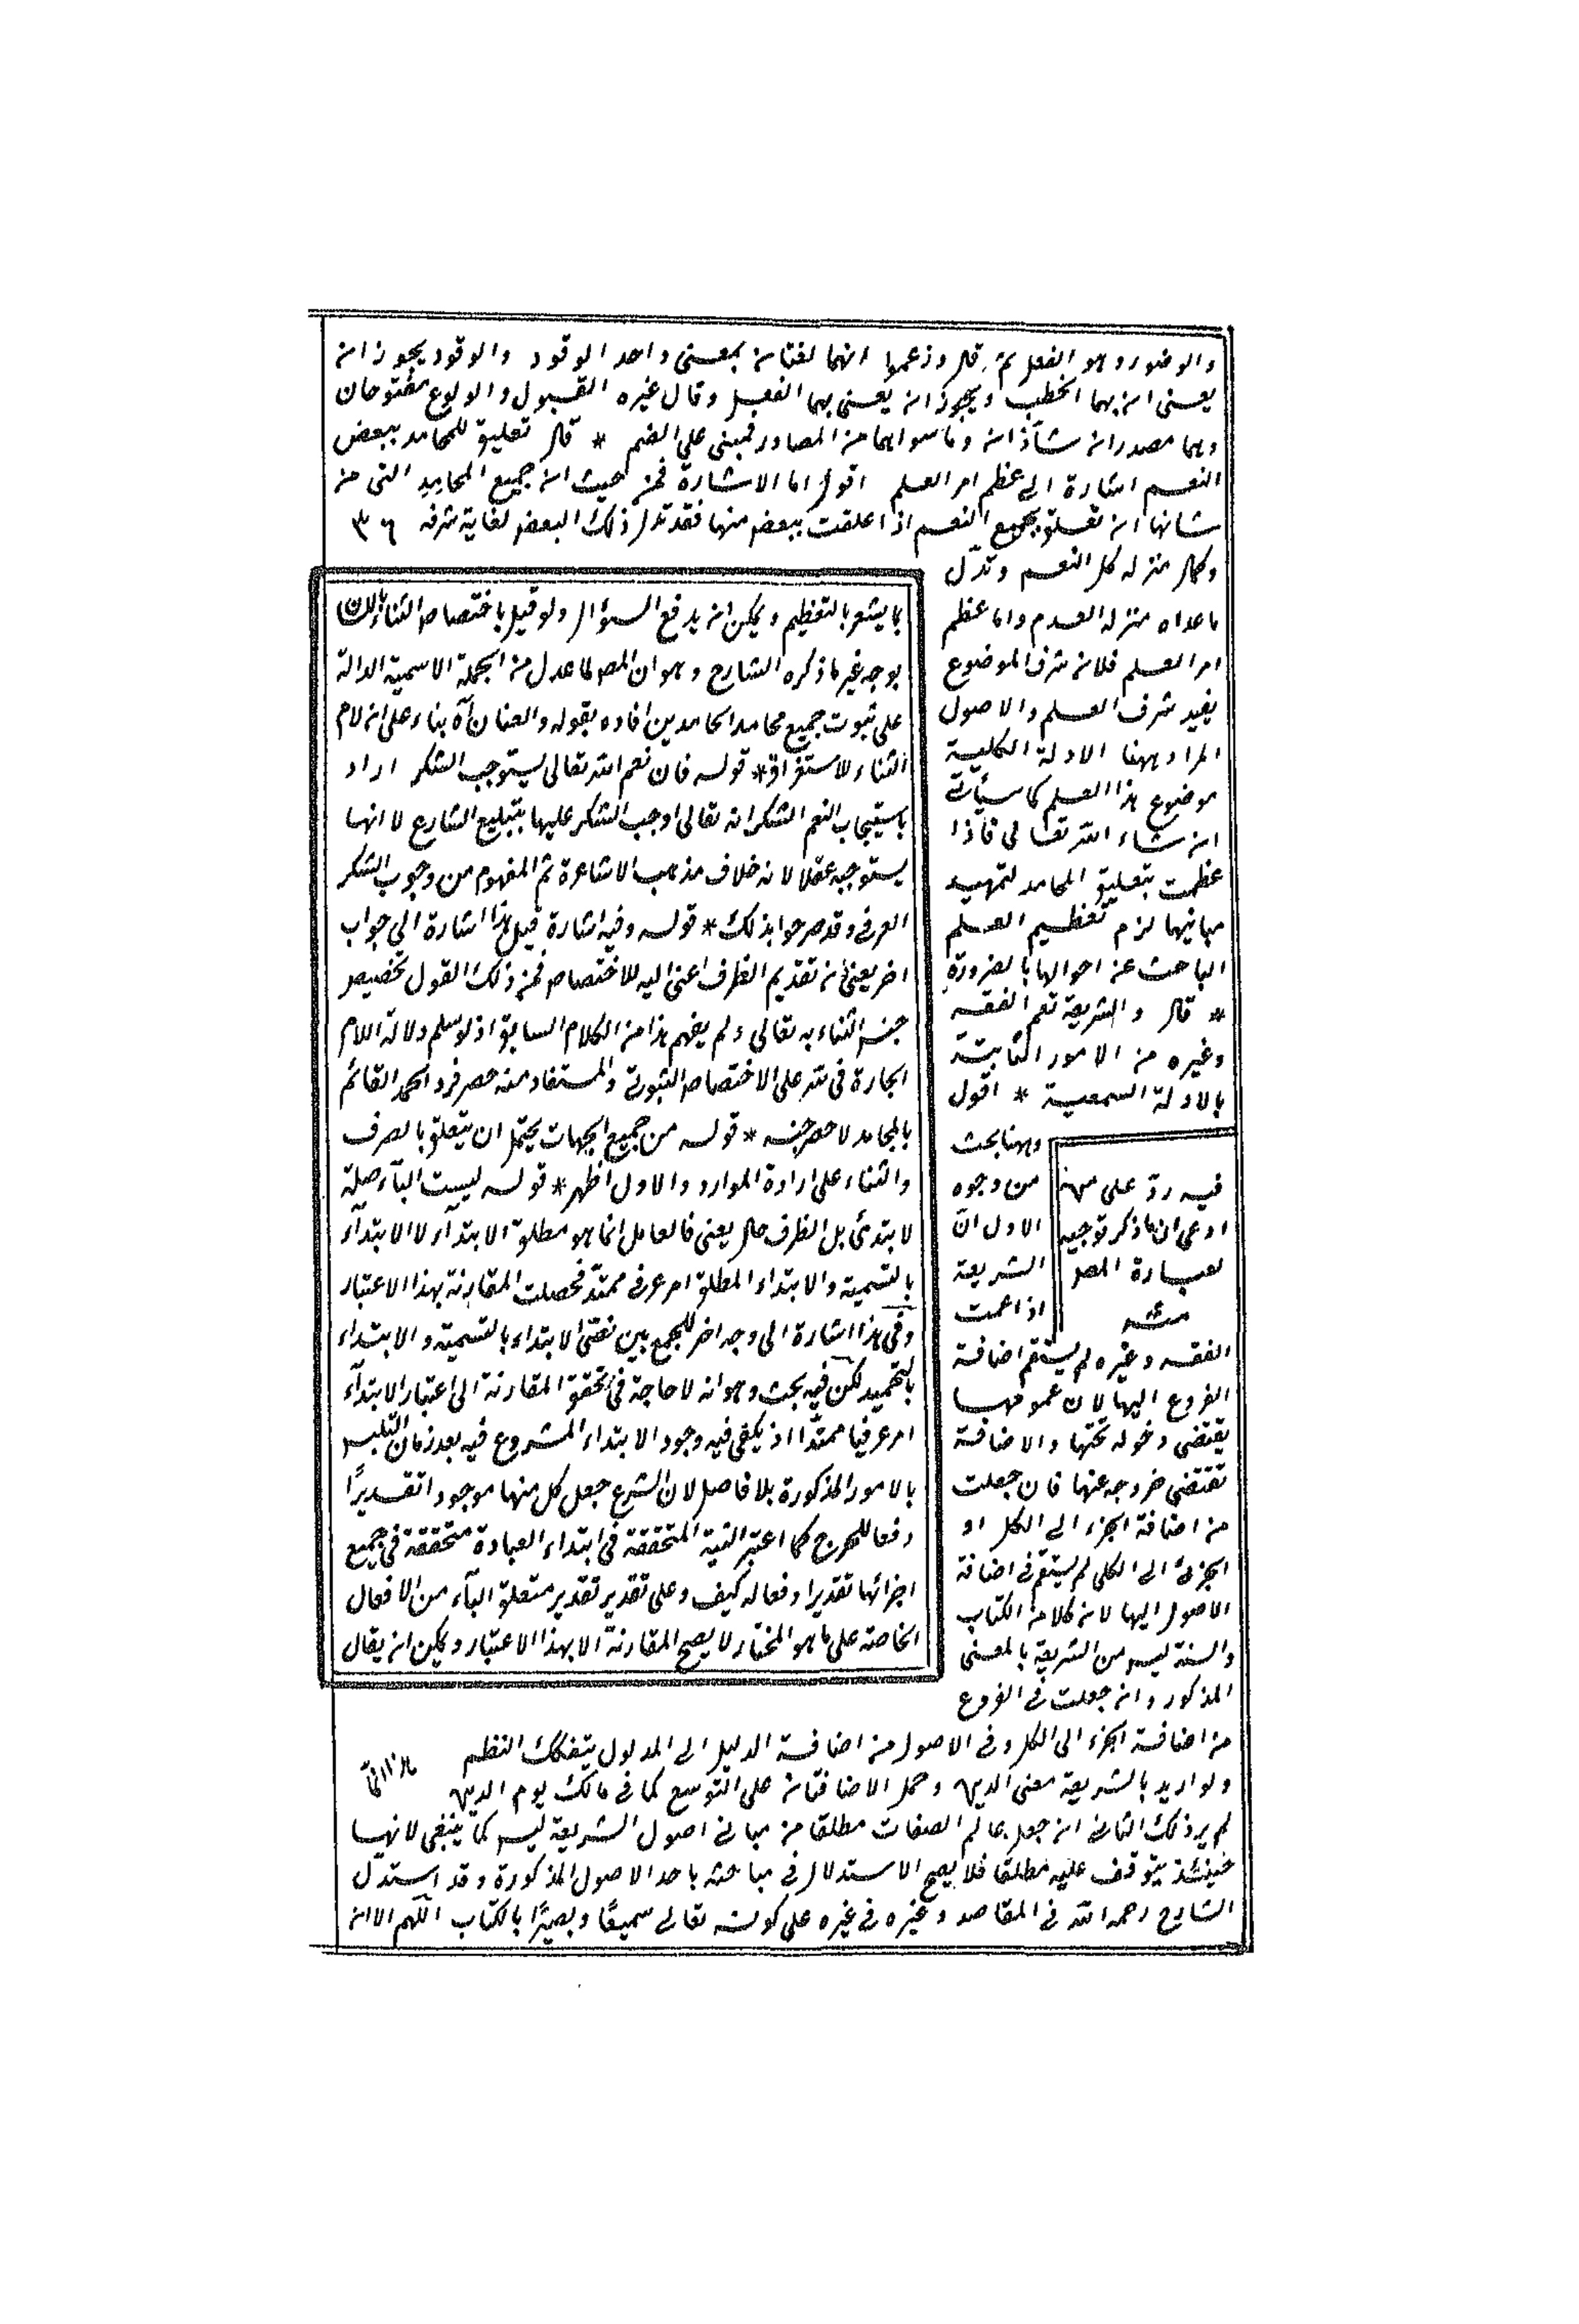 والوضوء وهو الفعل ثم قال وزعموا انهما لغتان بمعنى واحد الوقود والوقود يجوز ان
يعنى ان بهما الحطب ويجوز ان يعنى بهما الفعل وقال غيره القبول والولوع مفتوحان
وهما مصدران شاذان وما سواهما من المصادر فمبنى على الضم * قال تعليق للمحامد ببعض
النعم اشارة الى عظم امر العلم اقول اما الاشارة فمن حيث ان جميع المحامد التى من
شانها ان تعلق بجميع النعم اذا علقت ببعض منها فقد تدل ذلك البعض لغاية شرفه
وكمال منزله كل النعم وتدل
ما عداه منزلة العدم واما عظم
امر العلم فلان شرف الموضوع
يفيد شرف العلم والاصول
المراد ههنا الادلة الكلية
موضوع هذا العلم كما سيأتى
ان شاء الله تعالى فاذا
عظمت بتعليق المحامد لتمهيد
مبانيها لزم تعظيم العلم
الباحث عن احوالها بالضرورة
* قال والشريعة تعم الفقه
وغيره من الامور الثابتة
بالادلة السمعية * اقول
وههنا بحث
من وجوه
الاول ان
الشريعة
اذا عمت
الفقه وغيره لم يستقم اضافة
الفروع اليها لان عمومها
يقتضى دخوله تحتها والاضافة
تقتضى خروجه عنها فان جعلت
من اضافة الجزء الى الكل او
الجزئى الى الكلى لم يستقم فى اضافة
الاصول اليها لان كلا من الكتاب
والسنة ليس من الشريعة بالمعنى
المذكور وان جعلت فى الفروع
من اضافة الجزء الى الكل وفى الاصول من اضافة الدليل الى المدلول يتفكك النظم
ولو اريد بالشريعة معنى الدين وحمل الاضافتان على التوسع كما فى مالك يوم الدين
لم يرد ذلك الثانى ان جعل عالم الصفات مطلقا من مبانى اصول الشريعة ليس كما ينبغى لانها
حينئذ يتوقف عليه مطلقا فلا يصح الاستدلال فى مباحثه باحد الاصول المذكورة وقد استدل
الشارح رحمه الله فى المقاصد وغيره فى غيره على كونه تعالى سميعًا وبصيرًا بالكتاب اللهم الا ان
فيه رد على من
ادعى ان ما ذكر توجيه
لعبارة المص
منه
بما يشعر بالتعظيم ويمكن ان يدفع السؤال ولو قيل باختصاص الثناء باللسان
بوجه غير ما ذكره الشارح وهو ان المص لما عدل من الجملة الاسمية الدالة
على ثبوت جميع محامد الحامدين افاده بقوله والعنان آه بناء على ان لام
الثناء للاستغراق * قوله فان نعم الله تعالى يستوجب الشكر اراد
باستيجاب النعم الشكر انه تعالى اوجب الشكر عليها بتبليغ الشارع لا انها
يستوجبه عقلا لانه خلاف مذهب الاشاعرة ثم المفهوم من وجوب الشكر
العرفى وقد صرحوا بذلك * قوله وفيه اشارة قيل هذا اشارة الى جواب
اخر يعنى ان تقديم الظرف اعنى اليه للاختصاص فمن ذلك القول تخصيص
جنس الثناء به تعالى ولم يفهم هذا من الكلام السابق اذ لو سلم دلالة اللام
الجارة فى لله على الاختصاص الثبوتى والمستفاد منه حصر فرد الحمد القائم
بالمحامد لا حصر جنسه * قوله من جميع الجهات يحتمل ان يتعلق بالصرف
والثناء على ارادة الموارد والاول اظهر * قوله ليست الباء صلة
لابتدئ بل الظرف حال يعنى فالعامل انما هو مطلق الابتداء لا الابتداء
بالتسمية والابتداء المطلق امر عرفى ممتد فحصلت المقارنة بهذا الاعتبار
وفى هذا اشارة الى وجه اخر للجمع بين نعتى الابتداء بالتسمية والابتداء
بالتحميد لكن فيه بحث وهو انه لا حاجة فى تحقق المقارنة الى اعتبار الابتداء
امر عرفيا ممتدا اذ يكفى فيه وجود الابتداء المشروع فيه بعد زمان التلبس
بالامور المذكورة بلا فاصل لان الشرع جعل كل منها موجودا تقديرًا
دفعا للحرج كما اعتبر النية المتحققة فى ابتداء العبادة متحققة فى جميع
اجزائها تقديرا دفعا له كيف وعلى تقدير تقدير متعلق الباء من الافعال
الخاصة على ما هو المختار لا يصح المقارنة الا بهذا الاعتبار ويمكن ان يقال